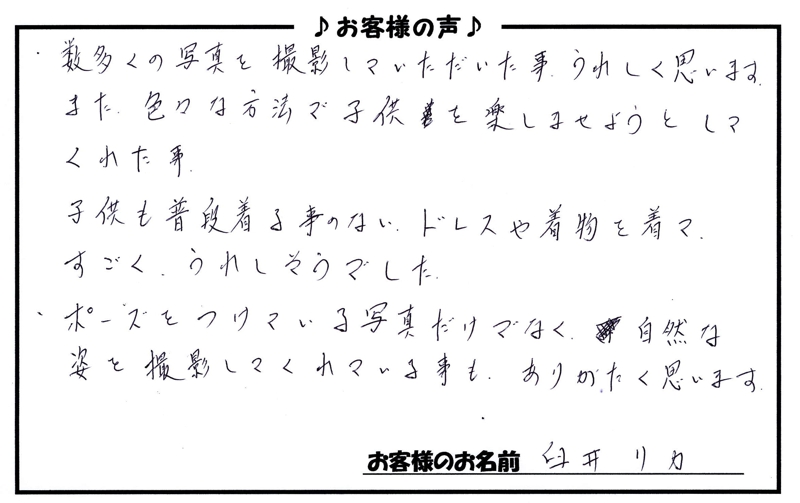 ♪お客様の声♪
・数多くの写真を撮影していただいた事、うれしく思います。
また、色々な方法で子供を楽しませようとして
くれた事。
子供も普段着る事のない、ドレスや着物を着て、
すごく、うれしそうでした。
・ポーズをつけている写真だけでなく、自然な
姿を撮影してくれている事も、ありがたく思います。
お客様のお名前 臼井 リカ